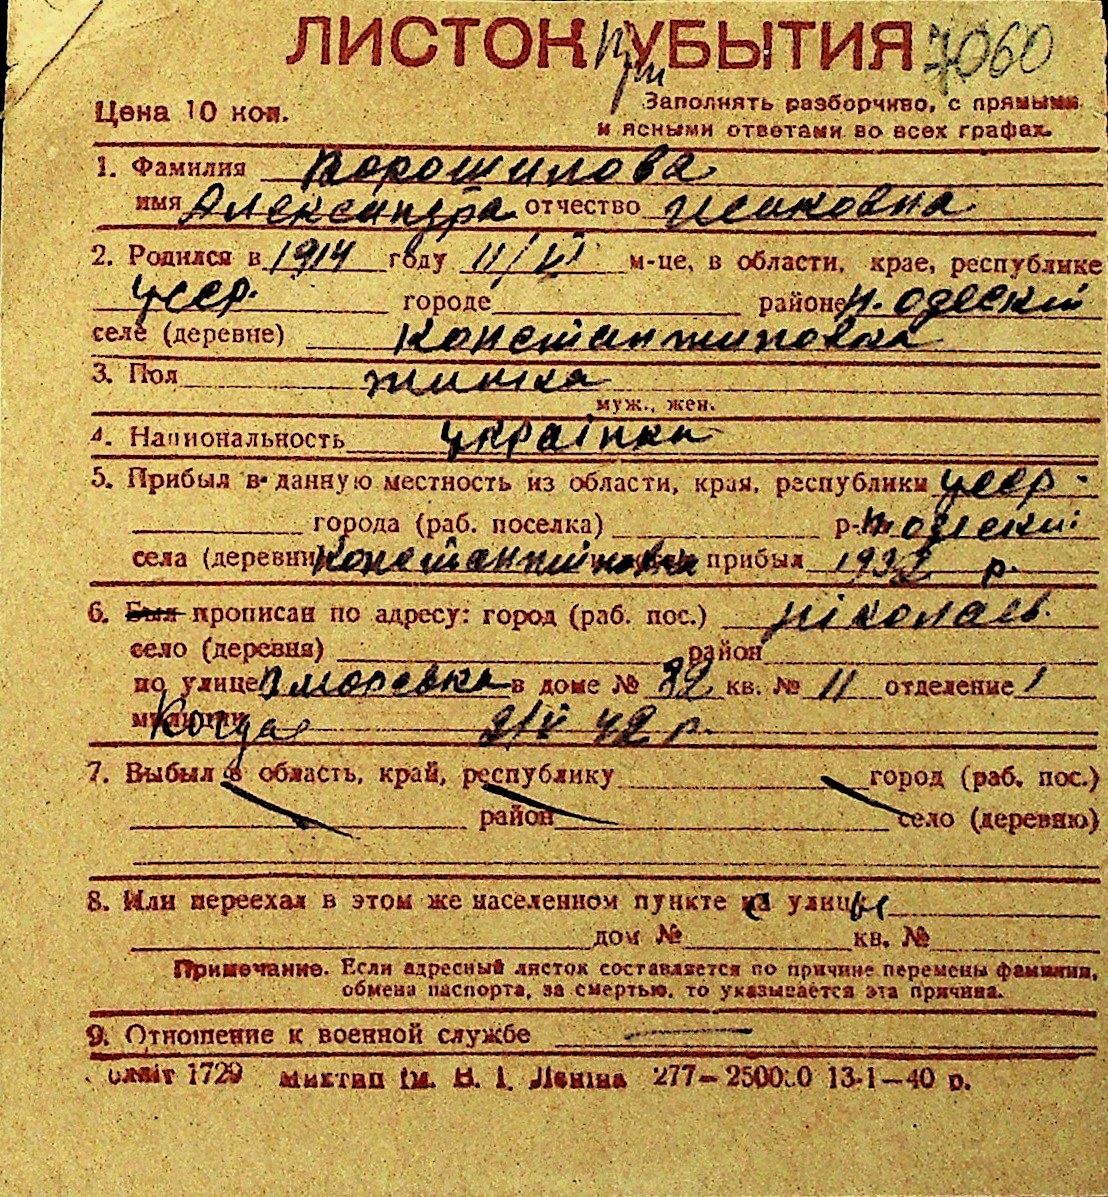 ЛИСТОК УБЫТИЯ 7060
Цена 10 коп. Заполнять разборчиво, с прямыми
и ясными ответами во всех графах.
1. Фамилия Ворошилова
имя Александра отчество Исаковна
2. Родился в 1914 году 11/VI м-це, в области, крае, республике
УССР. городе районе Н. Одескій
селе (деревне) Константиновка
3. Пол жінка
муж., жен.
4. Национальность українка
5. Прибыл в данную местность из области, края, республики УССР.
города (раб. поселка) р-на Н одескі
села (деревни) Константіновки прибыл 1932 р.
6. Был прописан по адресу: город (раб. пос.) Ніколаєв.
село (деревня) район
по улице в доме № 32 кв. № 11 отделение 1
милиции Когда 2/V 42 р.
7. Выбыл в область, край, республику город (раб. пос.)
район село (деревню)
8. Или переехал в этом же населенном пункте на улицы
дом № кв. №
Примечание. Если адресный листок составляется по причине перемены фамилии,
обмена паспорта, за смертью, то указывается эта причина.
9. Отношение к военной службе —
Облліт 1729 Миктип ім. В. І. Леніна 277—250000 13-1—40 р.